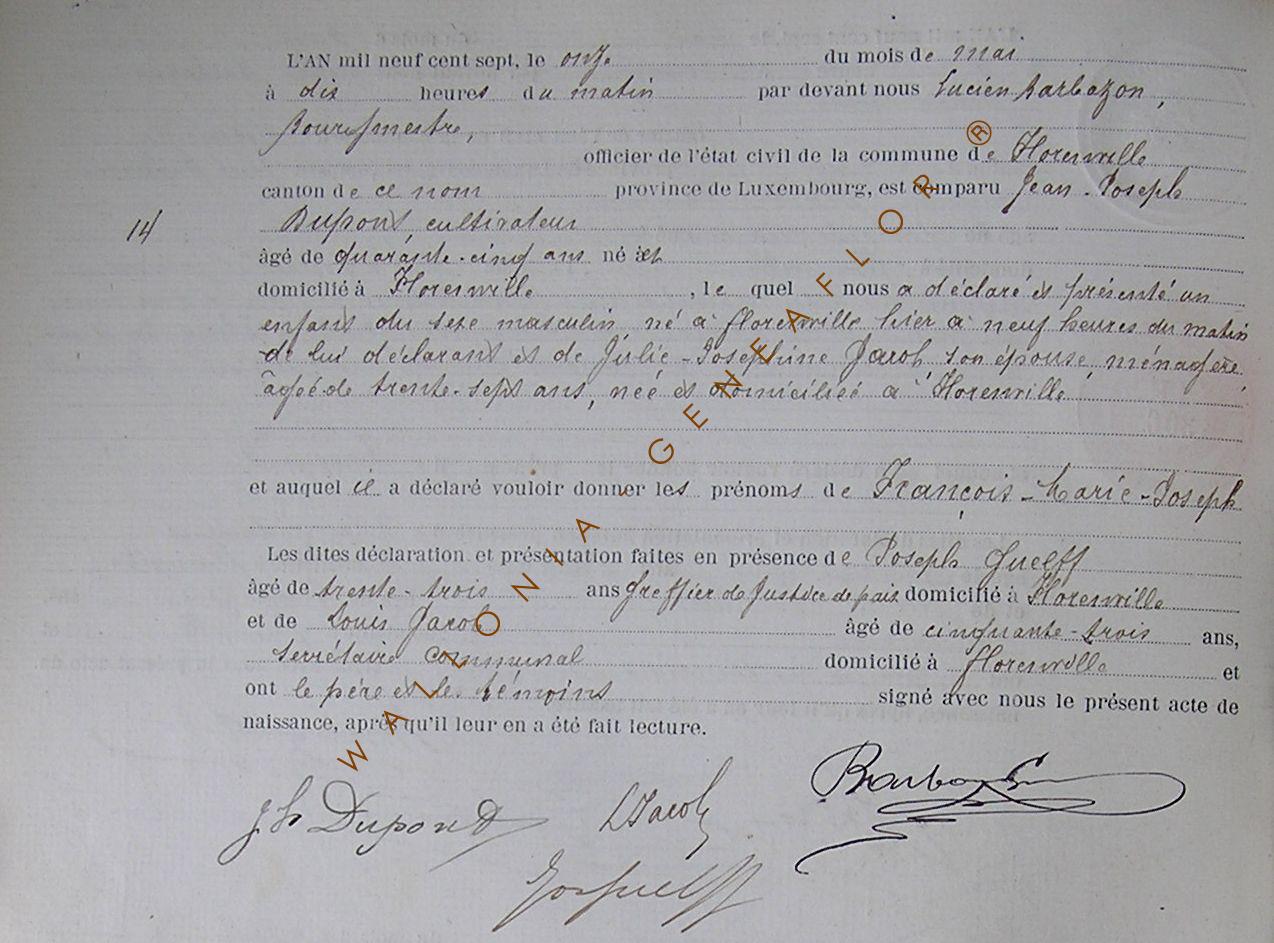 L'AN mil neuf cent sept, le onze du mois de mai
à dix heures du matin par devant nous Lucien Barbazon,
Bourgmestre,
officier de l'état civil de la commune de Florenville
canton de ce nom province de Luxembourg, est comparu Jean-Joseph
14 Dupont, cultivateur
âgé de quarante-cinq ans né et
domicilié à Florenville, le quel nous a déclaré et présenté un
enfant du sexe masculin né à Florenville hier à neuf heures du matin
de lui déclarant et de Julie-Joséphine Jacob son épouse, ménagère,
âgée de trente-sept ans, née et domiciliée à Florenville
et auquel il a déclaré vouloir donner les prénoms de François-Marie-Joseph
Les dites déclaration et présentation faites en présence de Joseph Guelff
âgé de trente-trois ans Greffier de Justice de paix domicilié à Florenville
et de Louis Jacob âgé de cinquante-trois ans,
secrétaire communal domicilié à Florenville et
ont le père et le témoins signé avec nous le présent acte de
naissance, après qu'il leur en a été fait lecture.
WALLONIA GENEAFLOR ®
Jh Dupont LJacob Barbazon
Jos Guelff